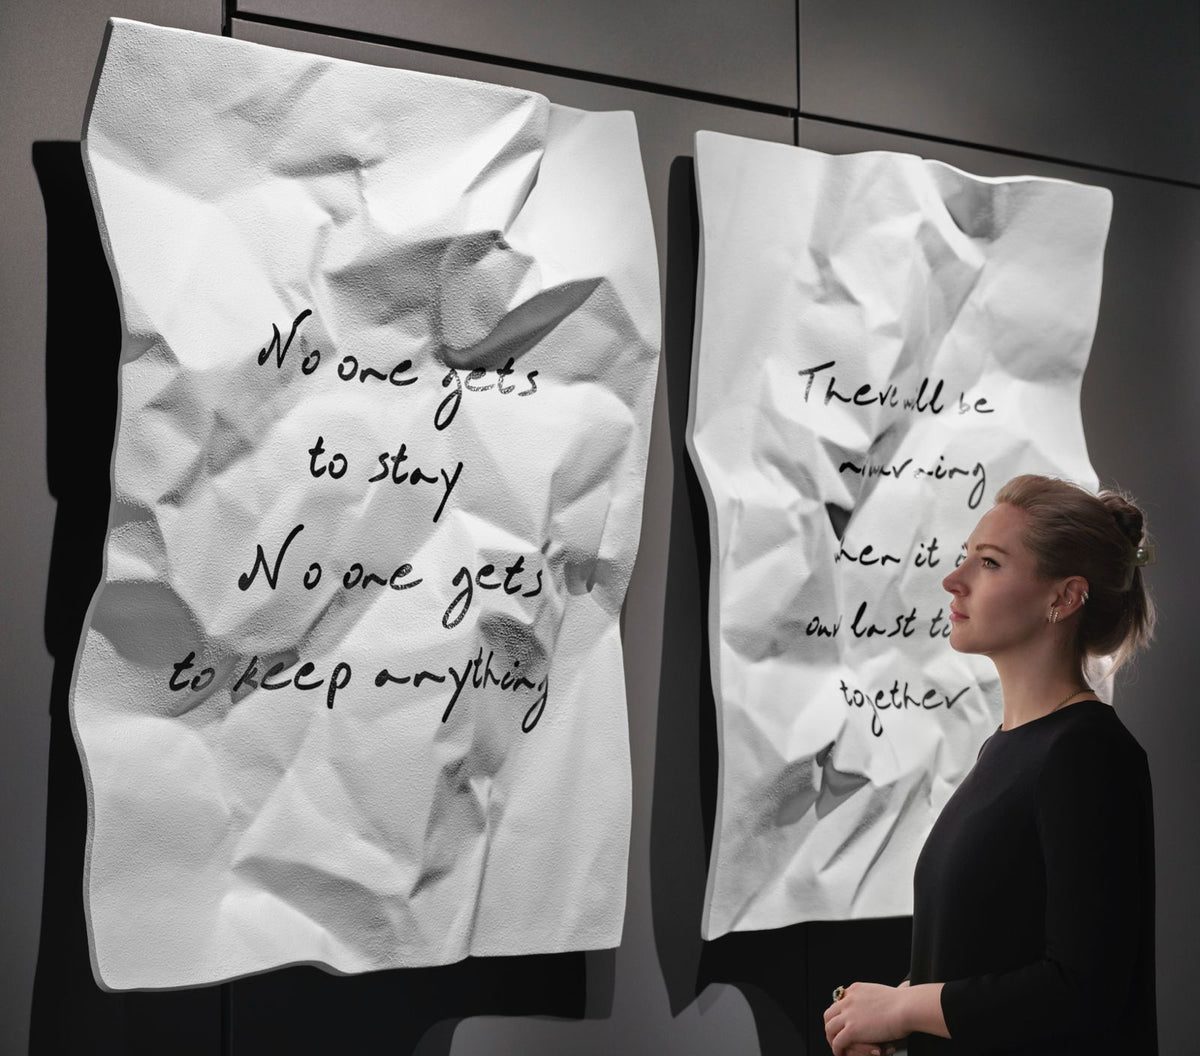 No one gets
to stay
No one gets
to keep anything
There will be
when it
our last
together